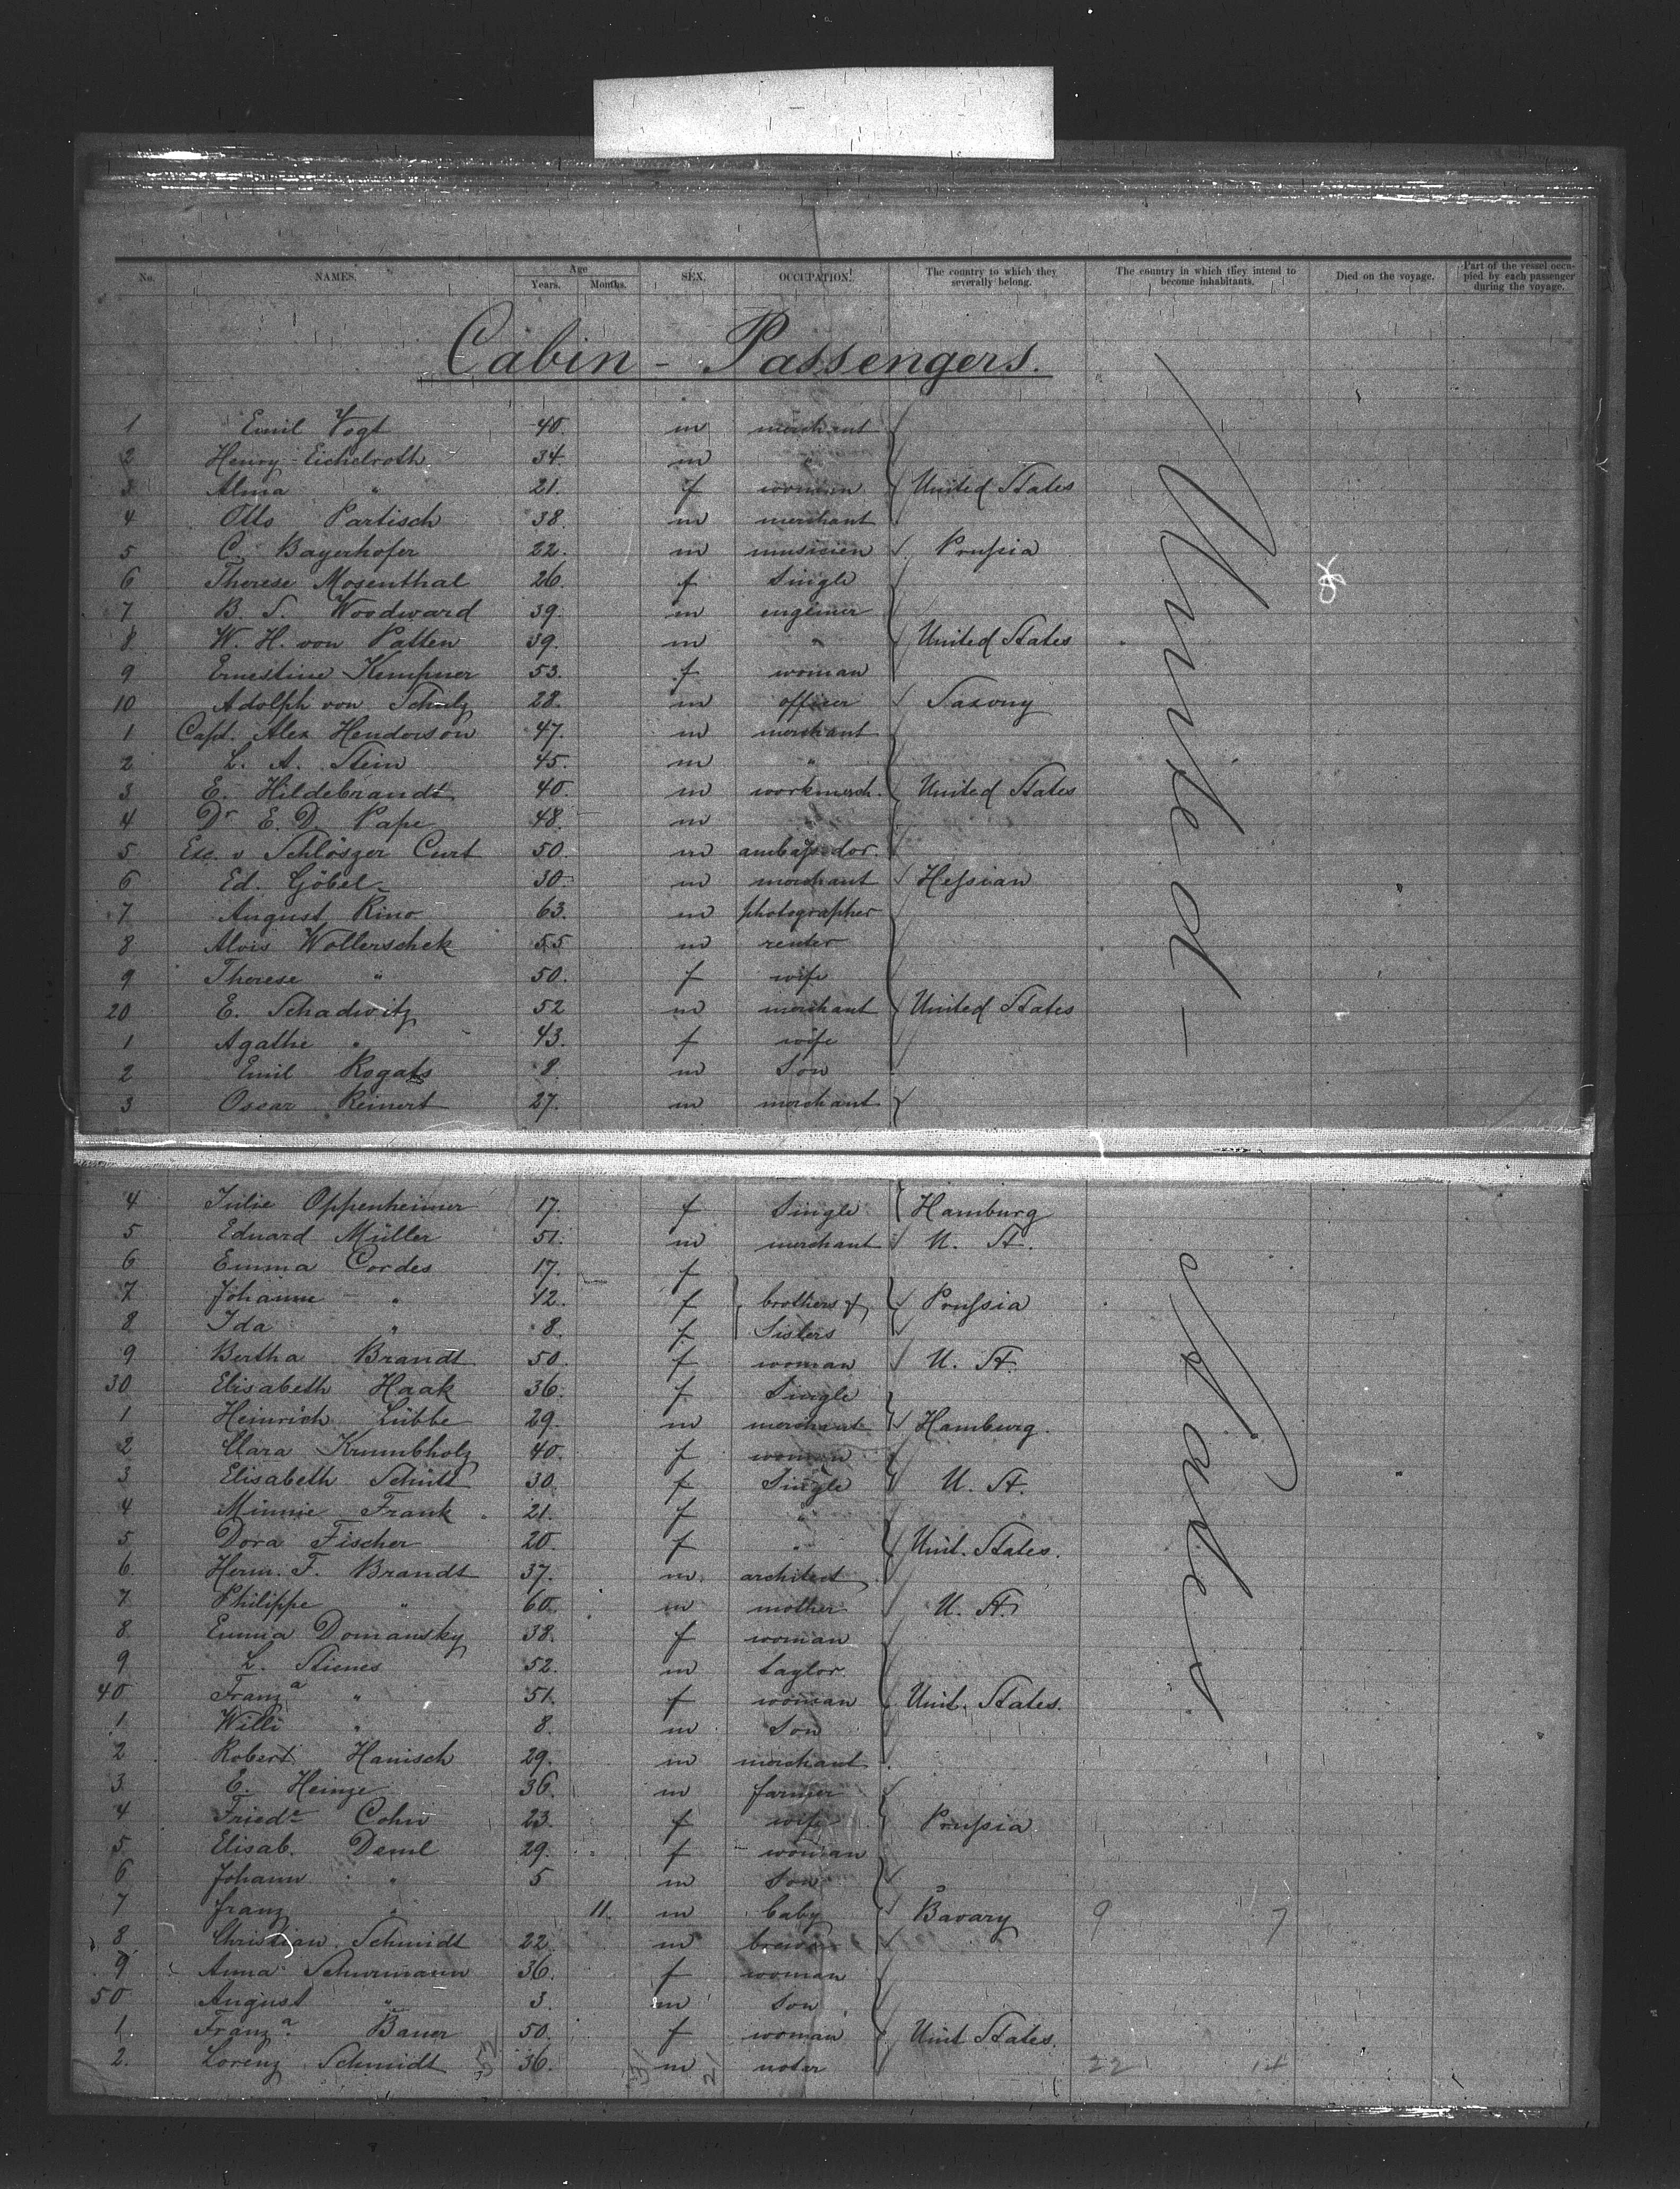 No. NAMES. Age Years. Months. SEX. OCCUPATION. The country to which they severally belong. The country in which they intend to become inhabitants. Died on the voyage. Part of the vessel occupied by each passenger during the voyage.
Cabin - Passengers.
1 Emil Vogt 40. m merchant
2 Henry Eichelroth 34. m "
3 Alma " 21. f woman United States
4 Otto Partisch 38. m merchant
5 C. Bayerhofer 22. m musicien Prussia
6 Therese Mosenthal 26. f single
7 B. S. Woodward 39. m engineer
8 W. H. von Patten 39. m " United States
9 Ernestine Kempner 53. f woman
10 Adolph von Schulz 28. m officer Saxony
1 Capt. Alex Henderson 47. m merchant
2 L. A. Stein 45. m "
3 E. Hildebrandt 40. m workmerch. United States
4 Dr E. D. Pape 48. m
5 Exc. v Schlöszer Curt 50. m ambassador.
6 Ed. Göbel 30. m merchant Hessian
7 August Rino 63. m photographer
8 Alois Wollerschek 55 m renter
9 Therese " 50. f wife
20 E. Schadwitz 52 m merchant United States
1 Agathe " 43. f wife
2 Emil Rogats 9. m son
3 Oscar Reinert 27. m merchant
4 Julie Oppenheimer 17. f single Hamburg
5 Eduard Müller 51. m merchant U. St.
6 Emma Cordes 17. f
7 Johanne " 12. f brothers & Prussia
8 Ida " 8. f sisters
9 Bertha Brandt 50. f woman U. St.
30 Elisabeth Haak 36. f single
1 Heinrich Lübbe 29. m merchant Hamburg.
2 Clara Krumbholz 40. f woman
3 Elisabeth Schütt 30. f single U. St.
4 Minnie Frank 21. f "
5 Dora Fischer 20. f " Unit. States.
6 Herm. F. Brandt 37. m. architect
7 Philippe " 60. m mother U. St.
8 Emma Domansky 38. f woman
9 L. Stienes 52. m taylor.
40 Franza " 51. f woman Unit. States.
1 Willi " 8. m son
2 Robert Hanisch 29. m merchant
3 E. Heinze 36. m farmer
4 Frieda Cohn 23. f wife Prussia
5 Elisab. Deml 29. f woman
6 Johann " 5 m son
7 Franz " 11. m baby Bavary 9 7
8 Christian Schmidt 22. m brewer
9 Anna Schurmann 36. f woman
50 August " 3. m son
1 Franza Bauer 50. f woman Unit States.
2. Lorenz Schmidt 36. m noter 22 14
United
States